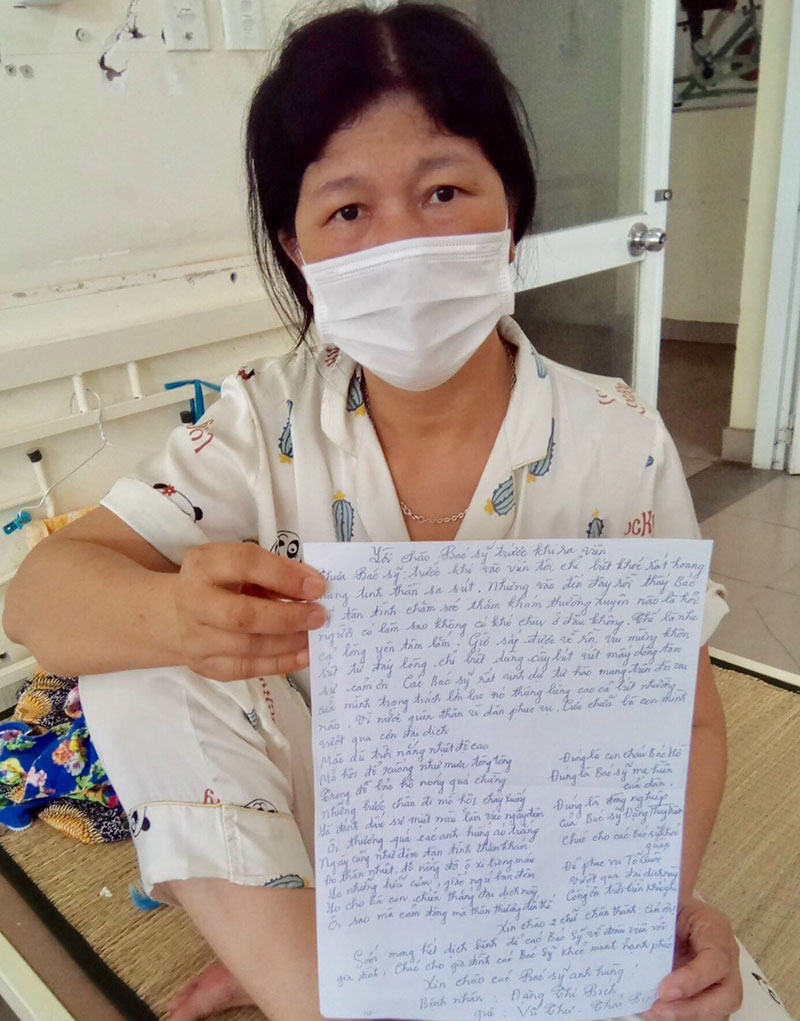 Lời chào Bác sỹ trước khi ra viện
Thưa Bác sỹ: trước khi vào viện tôi chỉ biết khóc rất hoang
mang tinh thần sa sút. Nhưng vào đến đây rồi thấy Bác
sỹ tận tình chăm sóc thăm khám thường xuyên nào là hỏi
người có làm sao không có khó chịu ở đâu không. Thế là nhẹ
cả lòng yên tâm lắm. Giờ sắp được về rồi vui mừng khôn
xiết từ đáy lòng chỉ biết dùng cây bút viết mấy dòng tâm
sự cảm ơn. Các Bác sỹ rất anh dũ tự hào mang trên đôi vai
của mình trọng trách lớn lao nó thiêng liêng cao cả biết nhường
nào. Vì nước quên thân vì dân phục vụ. Cứu chữa bà con mình
vượt qua cơn đại dịch
Mặc dù trời nắng nhiệt độ cao
Mồ hôi đổ xuống như mưa tong tỏng
Trong đồ bảo hộ nóng quá chừng
những bước chân đi mồ hôi chảy xuống
Và đánh dấu sự mệt mỏi lan vào ngày đêm
Ôi thương quá các anh hùng áo trắng
Ngày cũng như đêm tận tình thăm khám
Đo thân nhiệt, đo nồng độ ô xi trong máu
Lo những bữa cơm, giấc ngủ ban đêm
Lo cho bà con chiến thắng đại dịch này
Ôi sao mà cảm động mà thân thương đến thế
Đúng là con cháu Bác Hồ
Đúng là Bác sỹ mẹ hiền
của dân.
Đúng là đồng nghiệp
của Bác sỹ Đặng Thuỳ Trâm
Chúc cho các bác sỹ khoẻ
Để phục vụ Tổ Quốc
vượt qua đại dịch này
Xin chào 2 chữ chân thành cảm ơn!
Sớm mong hết dịch bệnh để các Bác sỹ về đoàn viên với
gia đình. Chúc cho gia đình các Bác sỹ khoẻ mạnh hạnh phúc
Xin chào các Bác sỹ anh hùng!
Bệnh nhân: Đặng Thị Bích
quê: Vũ Thư - Thái Bì